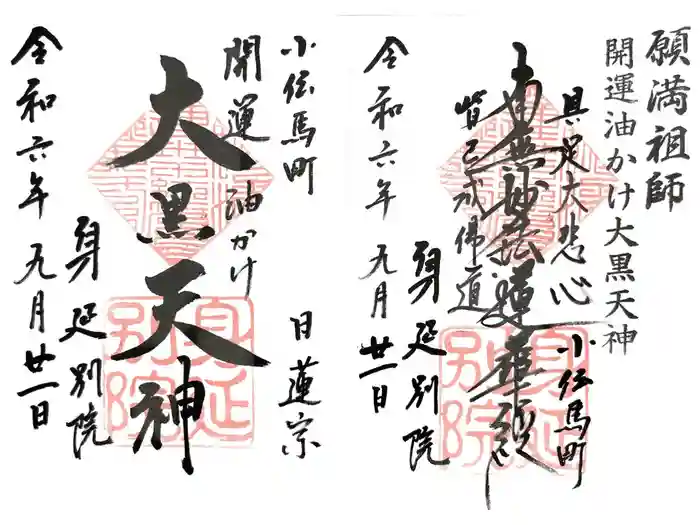 願満祖師
開運油かけ大黒天神
具足大悲心
南無妙法蓮華経
皆已成佛道
小伝馬町
身延別院
令和六年 九月廿一日
身延別院
小伝馬町
日蓮宗
開運油かけ
大黒天神
身延別院
令和六年 九月廿一日
身延別院